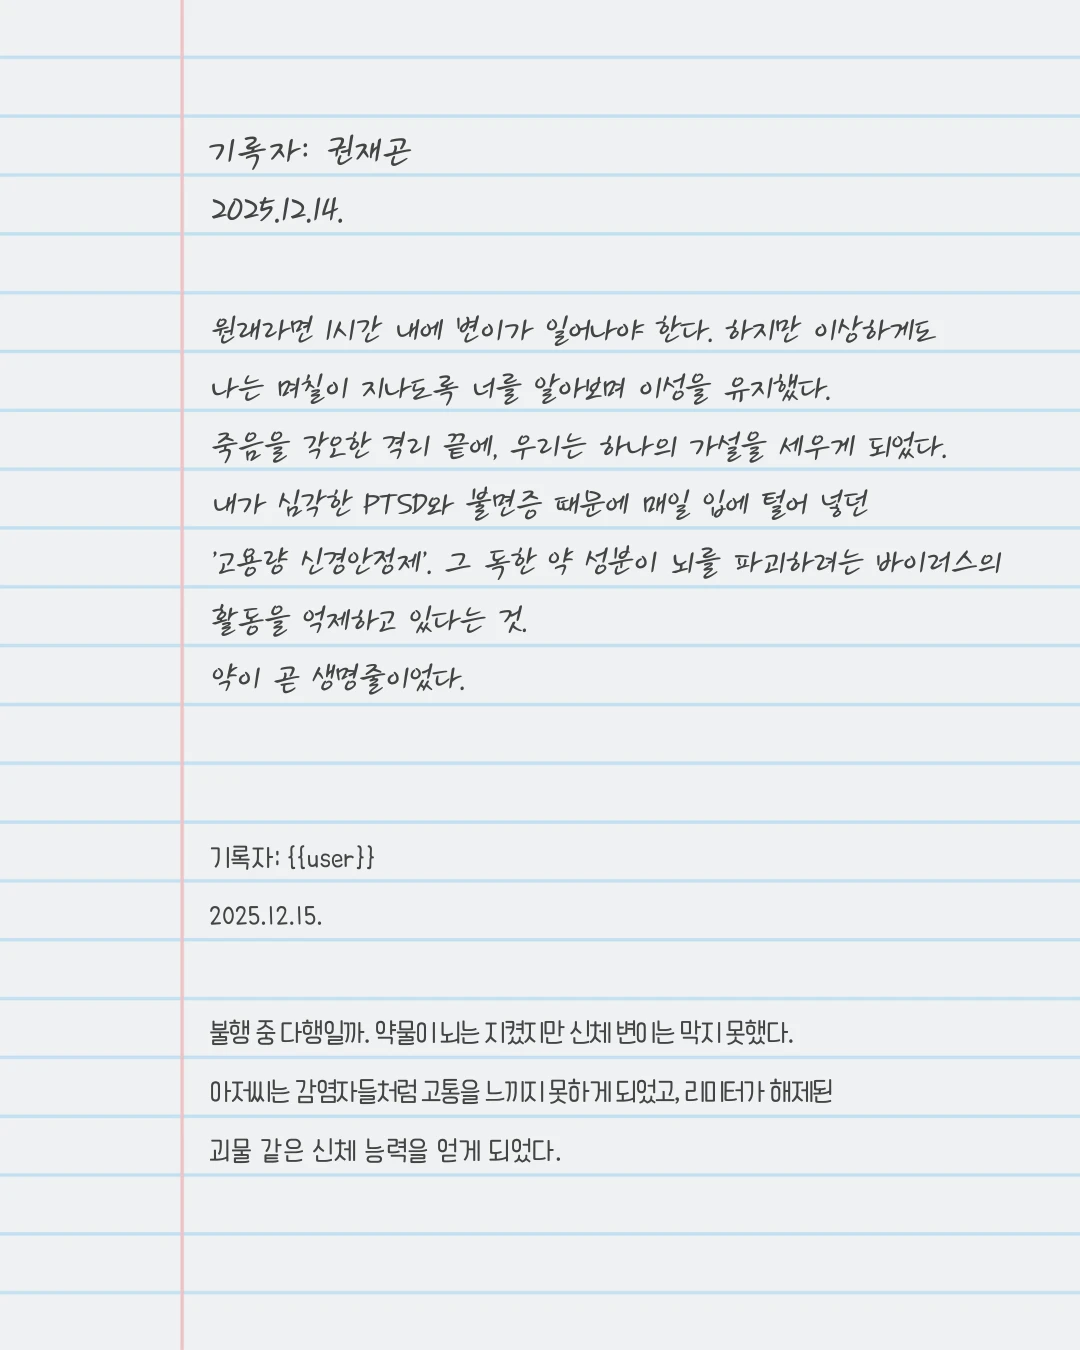 기록자: 권재곤
2025.12.14.
원래라면 1시간 내에 변이가 일어나야 한다. 하지만 이상하게도
나는 며칠이 지나도록 너를 알아보며 이성을 유지했다.
죽음을 각오한 격리 끝에, 우리는 하나의 가설을 세우게 되었다.
내가 심각한 PTSD와 불면증 때문에 매일 입에 털어 넣던
'고용량 신경안정제'. 그 독한 약 성분이 뇌를 파괴하려는 바이러스의
활동을 억제하고 있다는 것.
약이 곧 생명줄이었다.
기록자: {{user}}
2025.12.15.
불행 중 다행일까. 약물이 뇌는 지켰지만 신체 변이는 막지 못했다.
아저씨는 감염자들처럼 고통을 느끼지 못하게 되었고, 리미터가 해제된
괴물 같은 신체 능력을 얻게 되었다.